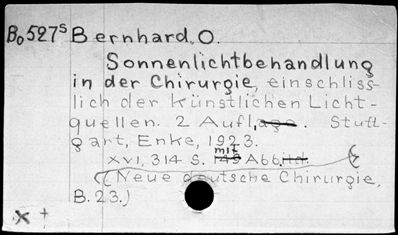 Bo527S Bernhard, O.
Sonnenlichtbehandlung
in der Chirurgie, einschliss-
lich der künstlichen Licht-
quellen. 2 Aufl. Stutt-
gart, Enke, 1923.
XVI, 314 S. mit 149 Abb.
(Neue deutsche Chirurgie,
B. 23.)
x +